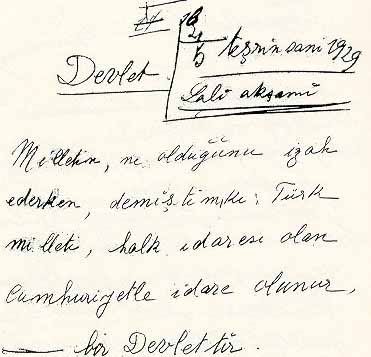 5 teşrin sani 1929
Devlet
Sali akşami
Milletin, ne olduğunu izah
ederken, demiştimki: Türk
milleti, halk idaresi olan
Cumhuriyetle idare olunur,
bir Devlettir.